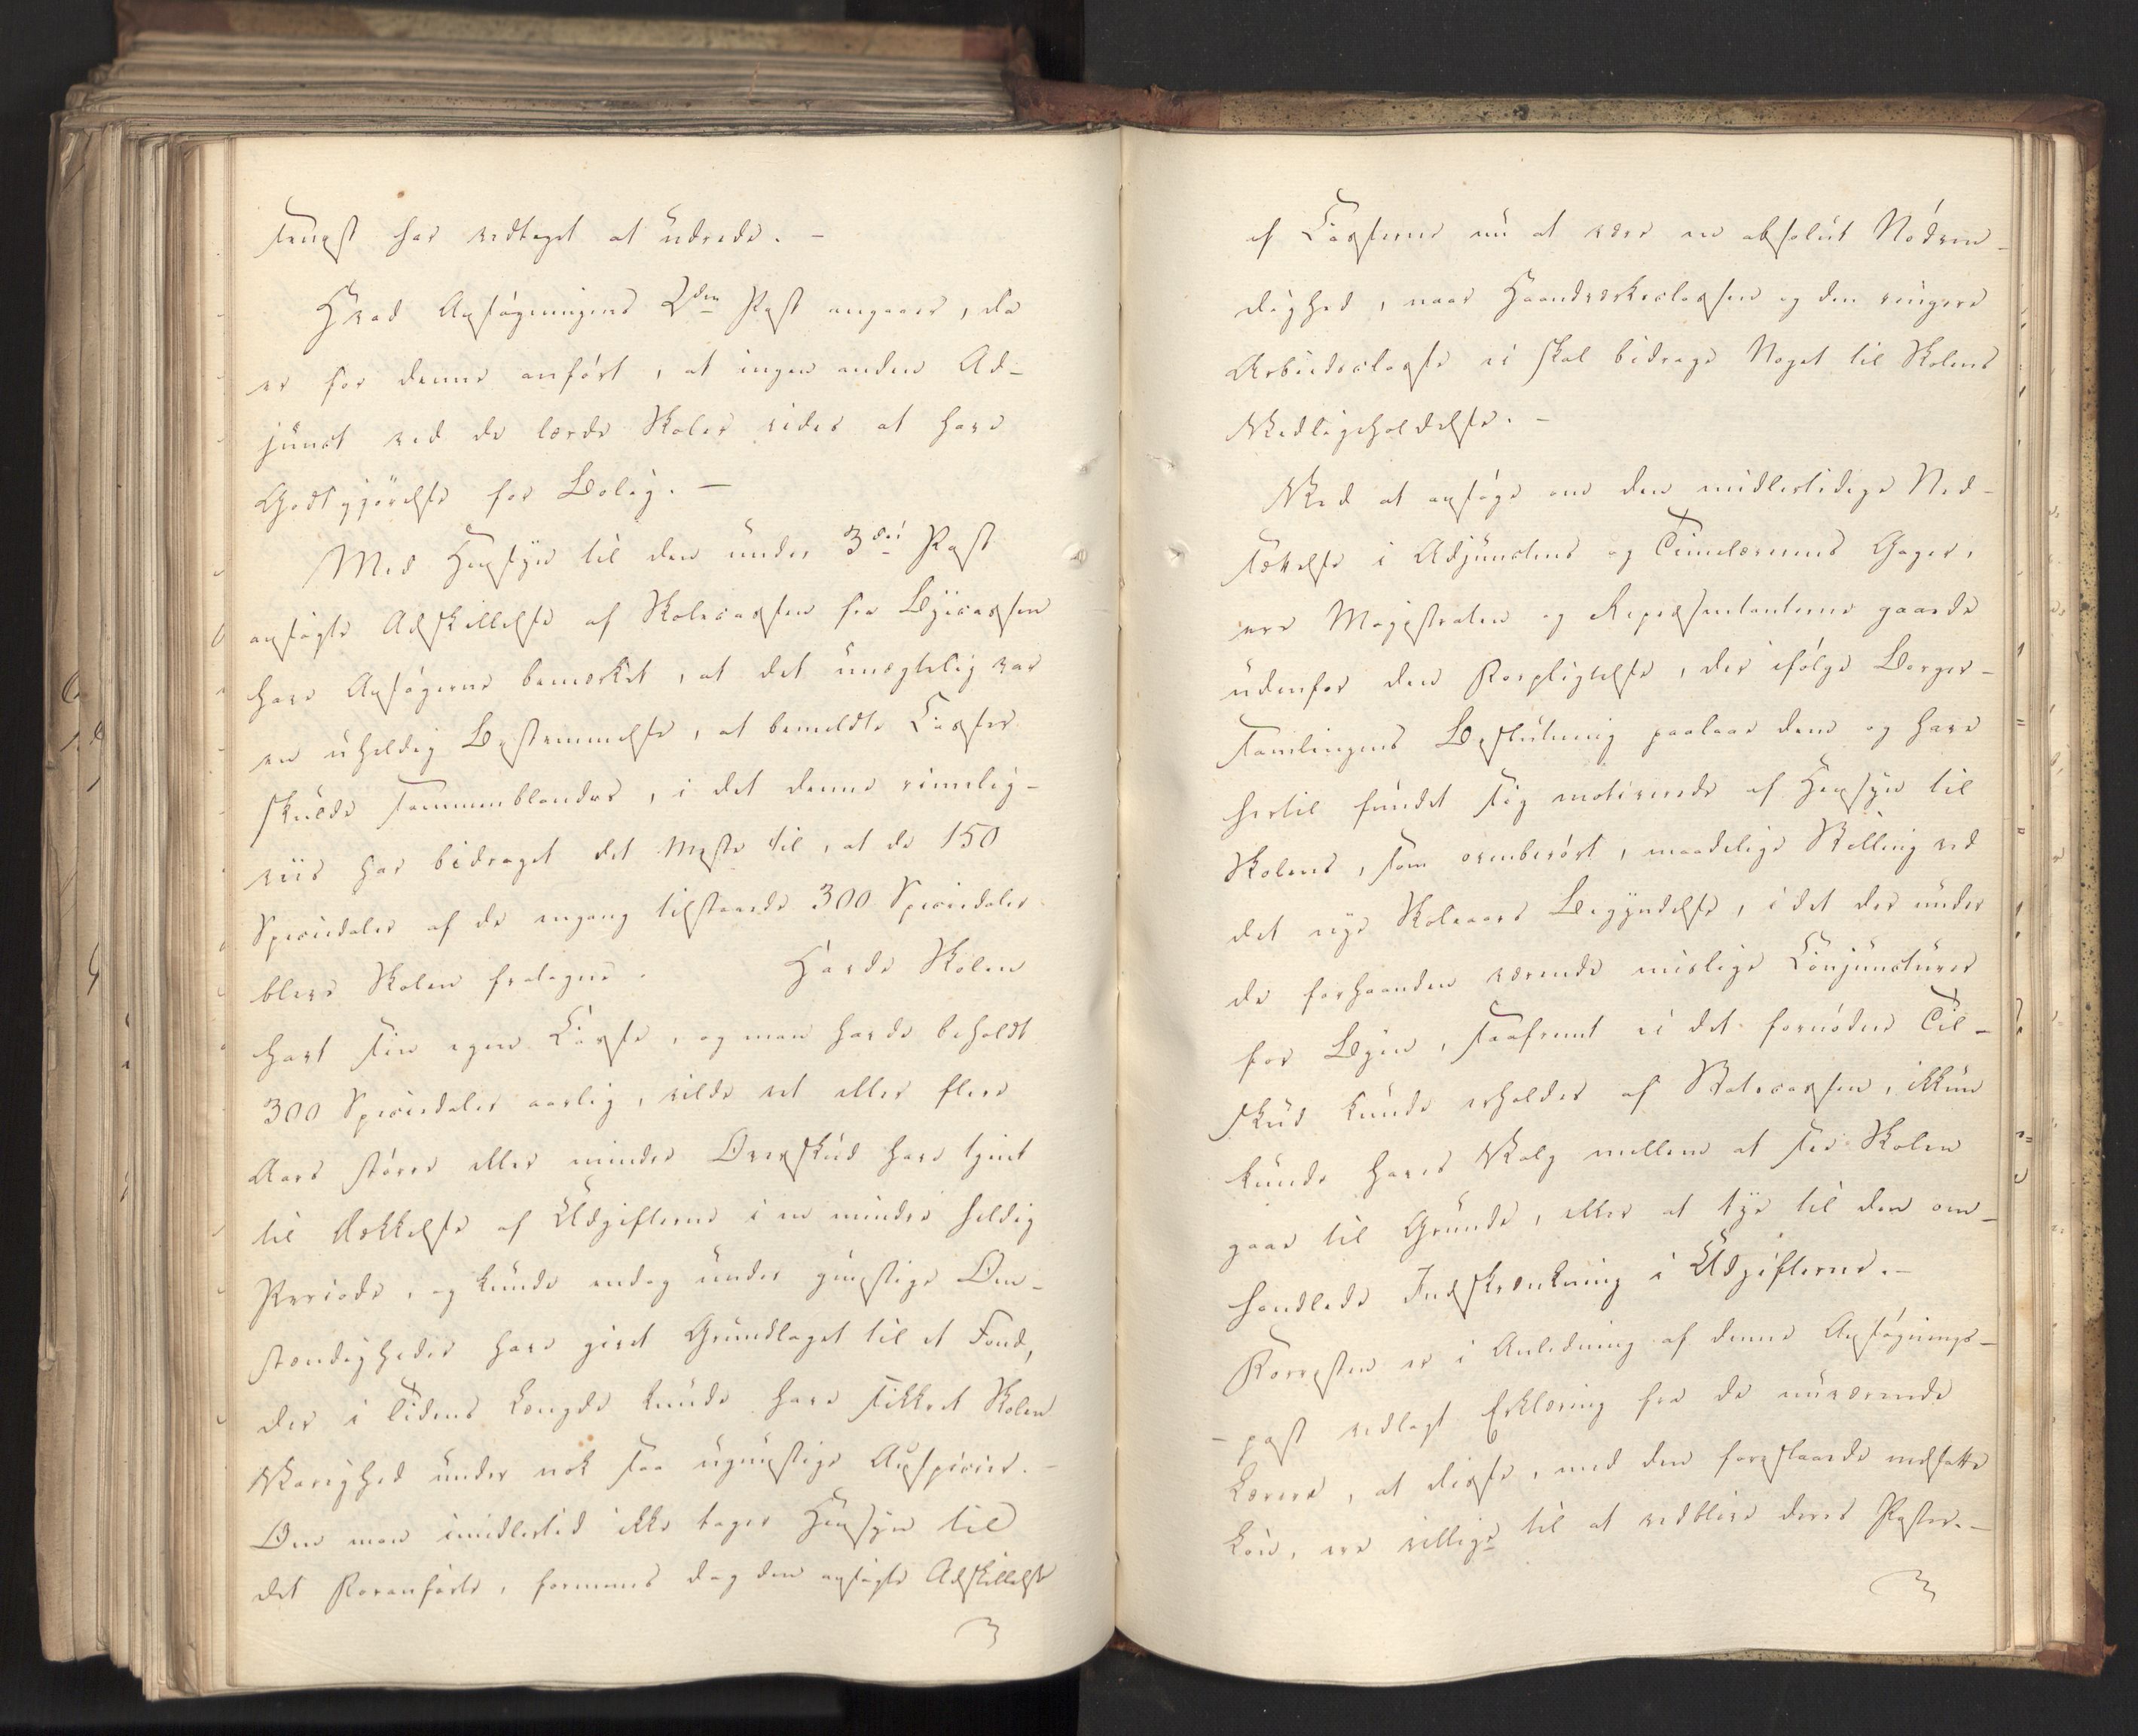 Trugst har vedtaget at udrede. –
Hvad Ansøgningens 2den Post angaaer, da
er for denne anført, at ingen anden Ad-
junct ved de lærde Skoler vides at have
Godtgjørelse for Bolig. –
Med Hensyn til den under 3die Post
ansøgte Adskillelse af Skolecassen fra Byecassen
have Ansøgerne bemærket, at det unægtelig var
en uheldig Bestemmelse, at bemeldte Casser
skulde sammenblandes, i det denne rimelig-
viis har bidraget det Meste til, at de 150
Speciedaler af de engang tilstaaede 300 Speciedaler
bleve Skolen fratagne. Havde Skolen
havt sin egen Casse, og man havde beholdt
300 Speciedaler aarlig, vilde et eller flere
Aars større eller mindre Overskud have tjent
til Dækkelse af Udgifterne i en mindre heldig
Periode, og kunde endog under gunstige Om-
stændigheder have givet Grundlaget til et Fond,
der i Tidens Længde kunde have sikkret Skolen
Varighed under nok saa ugunstige Auspicier. –
Om man imidlertid ikke tager Hensyn til
det Foranførte, formenes dog den ansøgte Adskillelse
af Casserne nu at være en absolut Nødven-
dighed, naar Haandverksclassen og den ringere
Arbiedsclasse ei skal bidrage Noget til Skolens
Vedligeholdelse. –
Ved at ansøge om den midlertidige Ned-
sættelse i Adjunctens og Timelærernes Gager,
ere Magistraten og Repræsentanterne gaaede
udenfor den Forpligtelse, der ifølge Borger-
samlingens Beslutning paalaae dem og have
hertil fundet sig motiverede af Hensyn til
Skolens, som ovenberørt, maadelige Stilling ved
det nye Skoleaars Begyndelse, i det der under
de forhaanden værende mislige Conjuncturer
for Byen, saafremt ei det fornødne Til-
skud kunde erholdes af Statscassen, ikkun
kunde haves Valg mellem at see Skolen
gaae til Grunde, eller at tye til den om-
handlede Indskrænkning i Udgifterne. –
Forresten er i Anledning af denne Ansøgnings-
– post vedlagt Erklæring fra de nuværende
Lærere, at disse, med den foreslaaede nedsatte
Løn, ere villige til at vedblive deres Poster. –